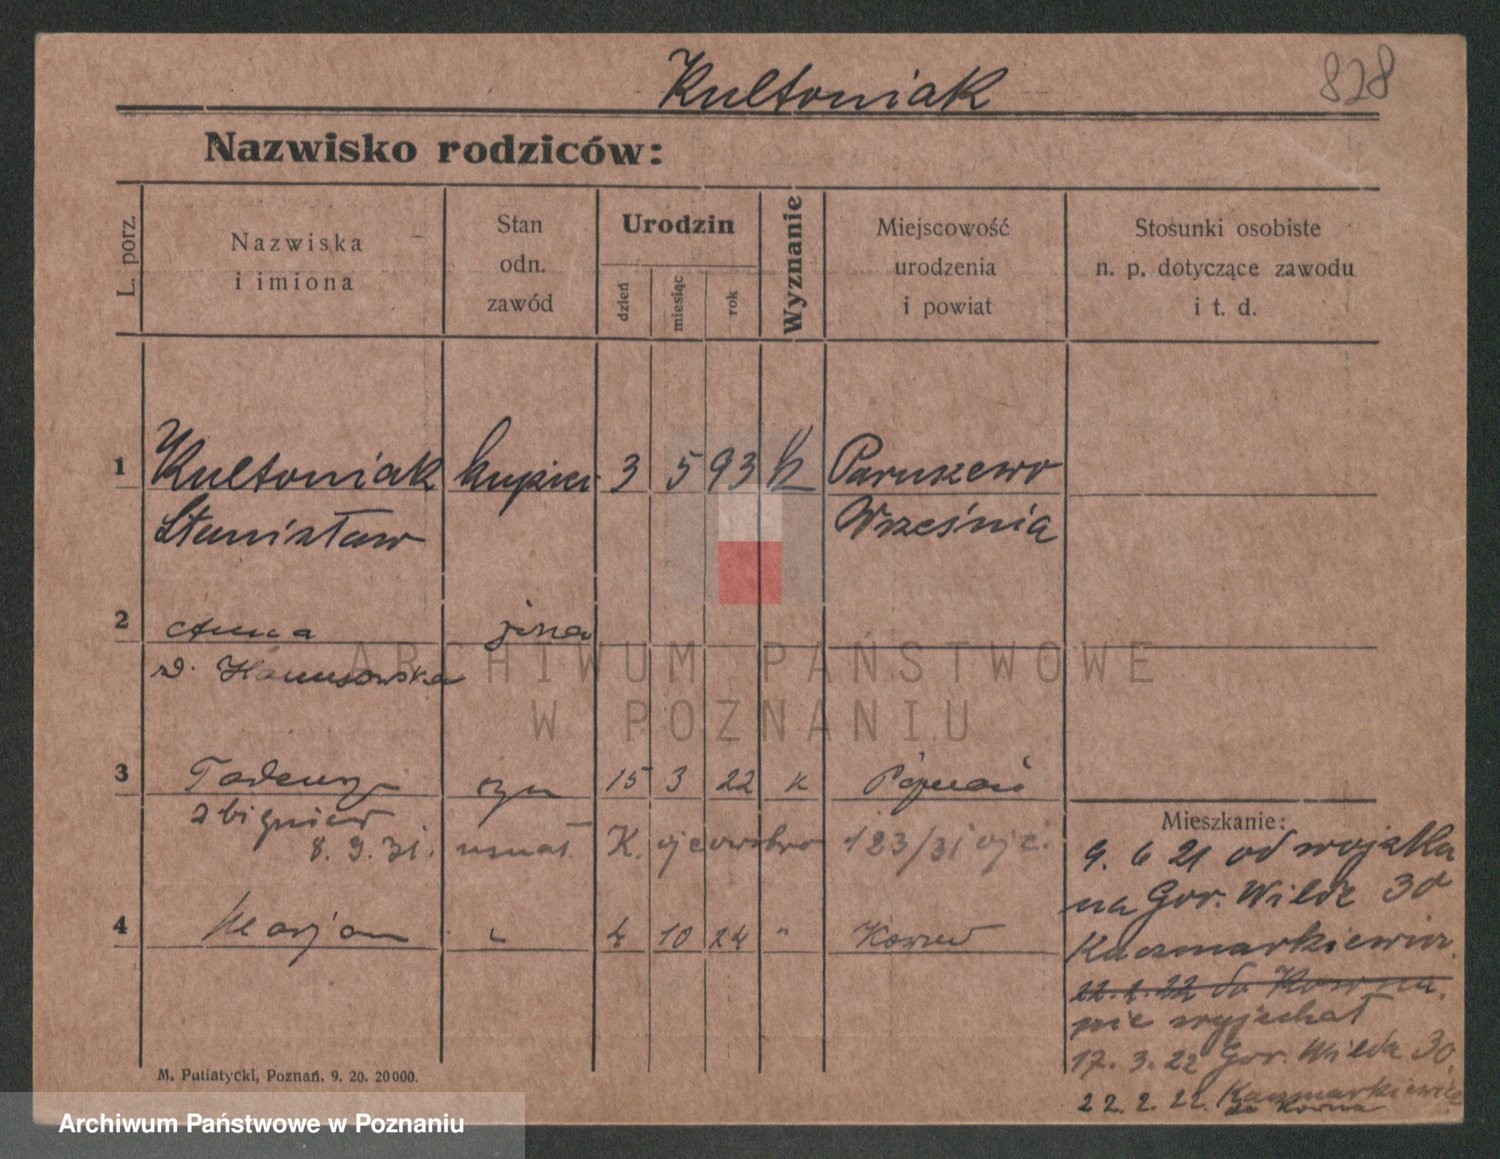 Kultoniak
828
Nazwisko rodziców:
L. porz.
Nazwiska
i imiona
Stan
odn.
zawód
Urodzin
dzień
miesiąc
rok
Wyznanie
Miejscowość
urodzenia
i powiat
Stosunki osobiste
n. p. dotyczące zawodu
i t. d.
1 Kultoniak kupiec 3 5 93 k Paruszewo
Stanisław Września
2 Anna żona
ARCHIWUM PAŃSTWOWE
W POZNANIU
3 Tadeusz syn 15 3 22 k Poznań
Zbigniew
8. 9. 31. usnat. K. ojcowstwo 123/31
4 Marjan " 4 10 24 "
Mieszkanie:
9. 6 21 od wojska
na Gór. Wilde 30
Kaczmarkiewicz
22. 2. 22 do
nie wyjechał
17. 3. 22 Gór. Wilda 30.
22. 2. 22. Kaczmarkiewicz
M. Putiatycki, Poznań. 9. 20. 20000.
Archiwum Państwowe w Poznaniu